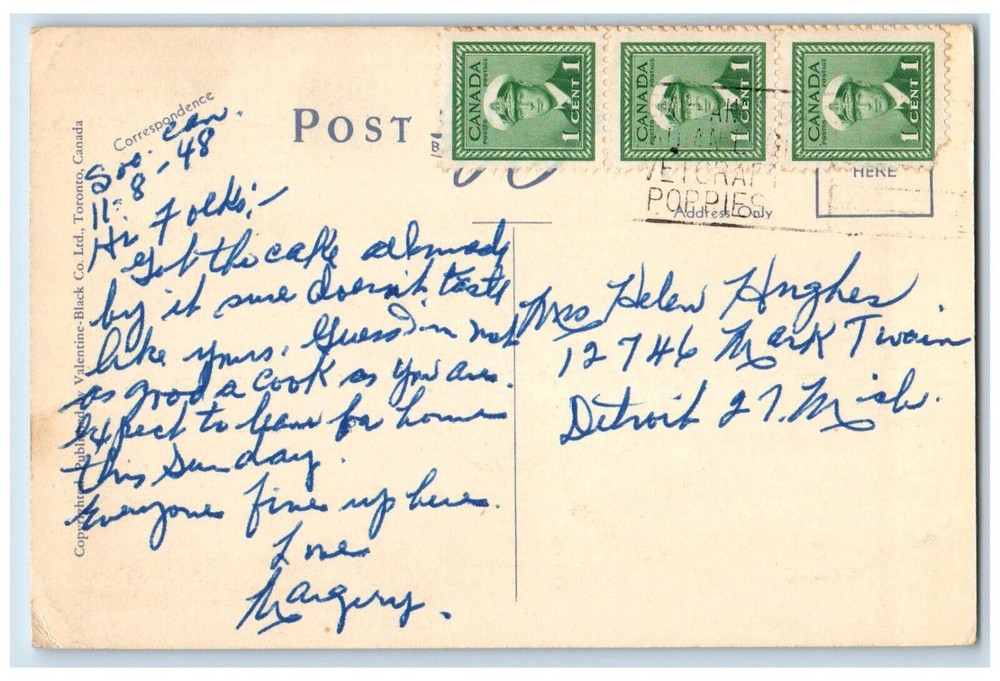 Correspondence
Soo. Can.
11-8-48
Hi Folks;-
Got the cake already
by it sure doesn't taste
like yours. Guess I'm not
as good a cook as you are.
Expect to leave for home
this Sunday.
Everyone fine up here.
Love
Margery.
Copyrighted Published by Valentine-Black Co. Ltd., Toronto, Canada
POST
CANADA
POSTAGE POSTES
1 CENT 1
CANADA
POSTAGE POSTES
1 CENT 1
CANADA
POSTAGE POSTES
1 CENT 1
VETCRAFT
POPPIES
HERE
Address Only
Mrs Helen Hughes
12746 Mark Twain
Detroit 27. Mich.